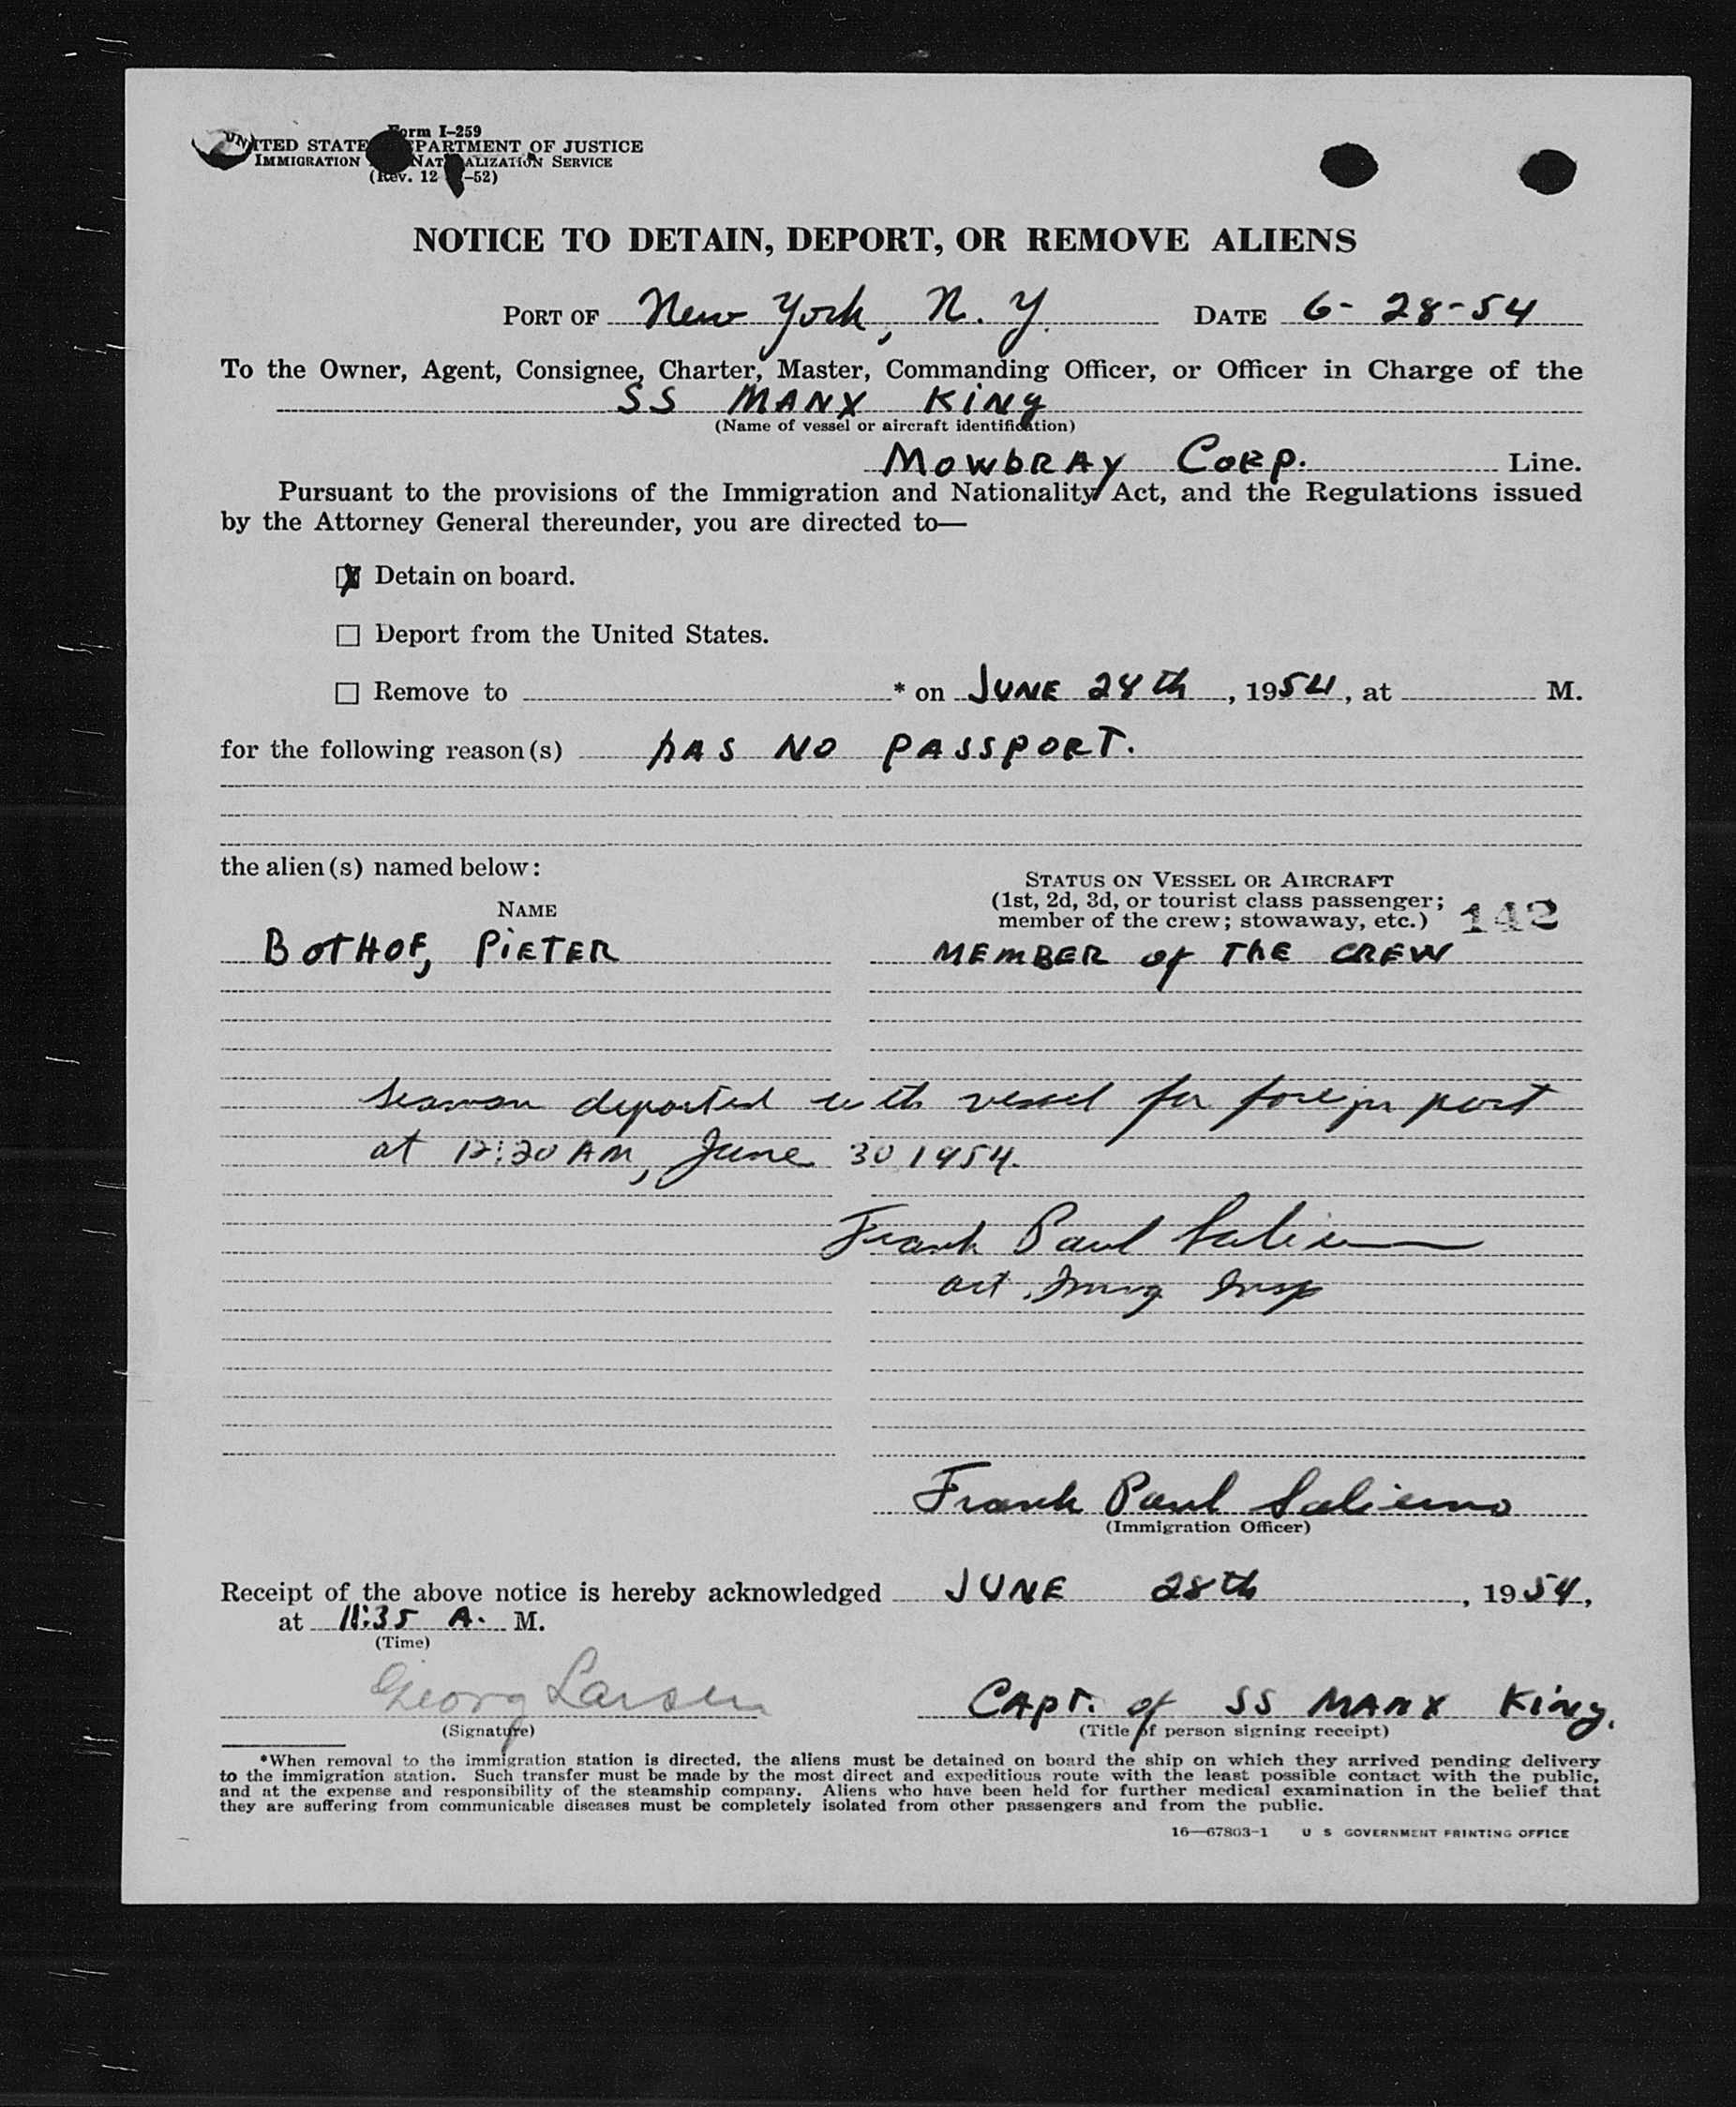 Form I-259
UNITED STATES DEPARTMENT OF JUSTICE
IMMIGRATION AND NATURALIZATION SERVICE
(Rev. 12 -52)
NOTICE TO DETAIN, DEPORT, OR REMOVE ALIENS
PORT OF New York, N.Y. DATE 6-28-54
To the Owner, Agent, Consignee, Charter, Master, Commanding Officer, or Officer in Charge of the
SS MANX KiNg
(Name of vessel or aircraft identification)
MowbRAy CoRp. Line.
Pursuant to the provisions of the Immigration and Nationality Act, and the Regulations issued
by the Attorney General thereunder, you are directed to—
☒ Detain on board.
☐ Deport from the United States.
☐ Remove to * on JUNE 28th, 1954, at M.
for the following reason(s) hAS NO PASSPORT.
the alien(s) named below:
STATUS ON VESSEL OR AIRCRAFT
(1st, 2d, 3d, or tourist class passenger;
member of the crew; stowaway, etc.) 142
NAME
BOTHOF, PiETER MEMBER of ThE CREW
Seaman departed with vessel for foreign port
at 12:20 AM, June 30 1954.
Frank Paul Salierno
act. Immig Insp
Frank Paul Salierno
(Immigration Officer)
Receipt of the above notice is hereby acknowledged JUNE 28th, 1954,
at 11:35 A. M.
(Time)
Georg Larsen CApt. of SS MANX KiNg.
(Signature) (Title of person signing receipt)
*When removal to the immigration station is directed, the aliens must be detained on board the ship on which they arrived pending delivery
to the immigration station. Such transfer must be made by the most direct and expeditious route with the least possible contact with the public,
and at the expense and responsibility of the steamship company. Aliens who have been held for further medical examination in the belief that
they are suffering from communicable diseases must be completely isolated from other passengers and from the public.
16—67803-1 U S GOVERNMENT PRINTING OFFICE